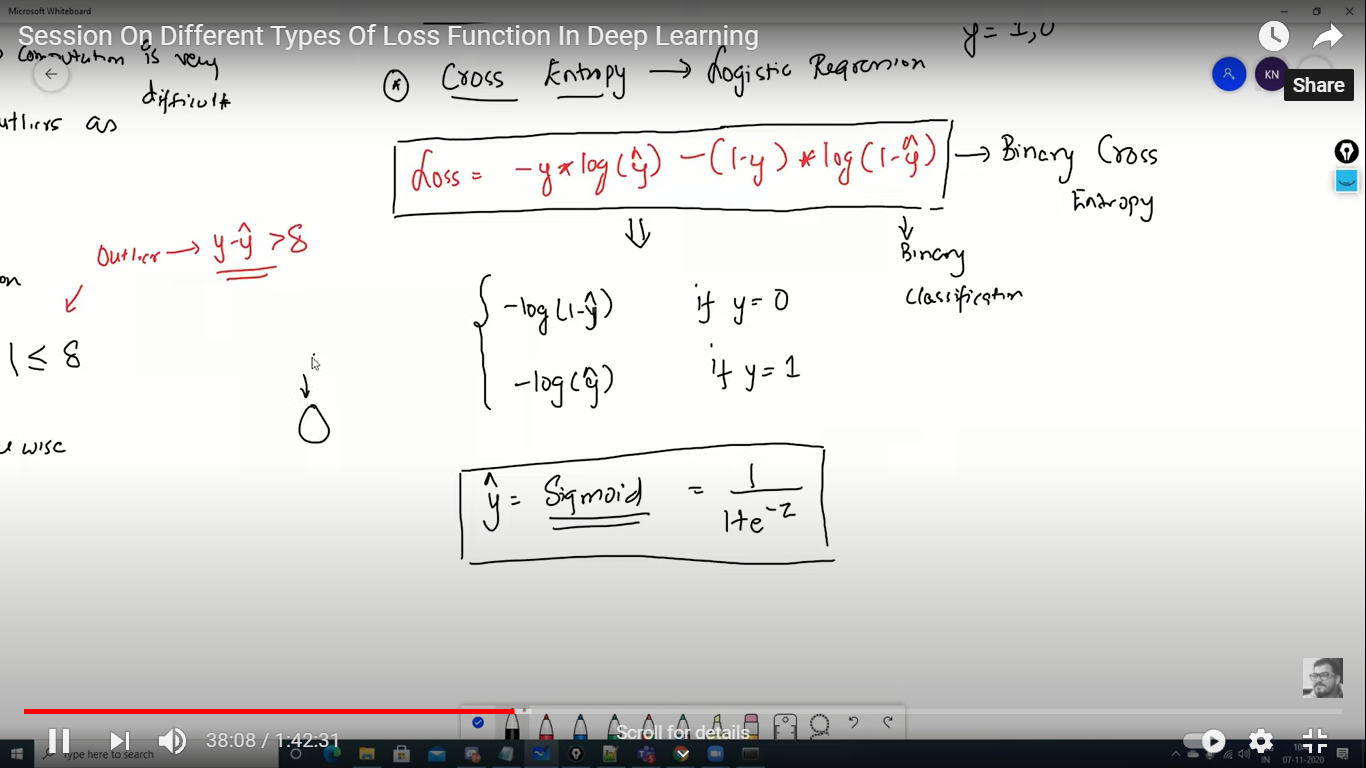 Microsoft Whiteboard
Session On Different Types Of Loss Function In Deep Learning
y = 1,0
Computation is very
difficult
outliers as
* Cross Entropy → Logistic Regression
KN
Share
Loss = -y * log(ŷ) - (1-y) * log(1-ŷ) → Binary Cross
Entropy
⇓
↓
Binary
Classification
Outlier → y-ŷ > δ
-log(1-ŷ) if y = 0
-log(ŷ) if y = 1
| ≤ δ
wise
ŷ = Sigmoid = 1/(1+e^-z)
38:08 / 1:42:31
Scroll for details
Type here to search
IN
07-11-2020